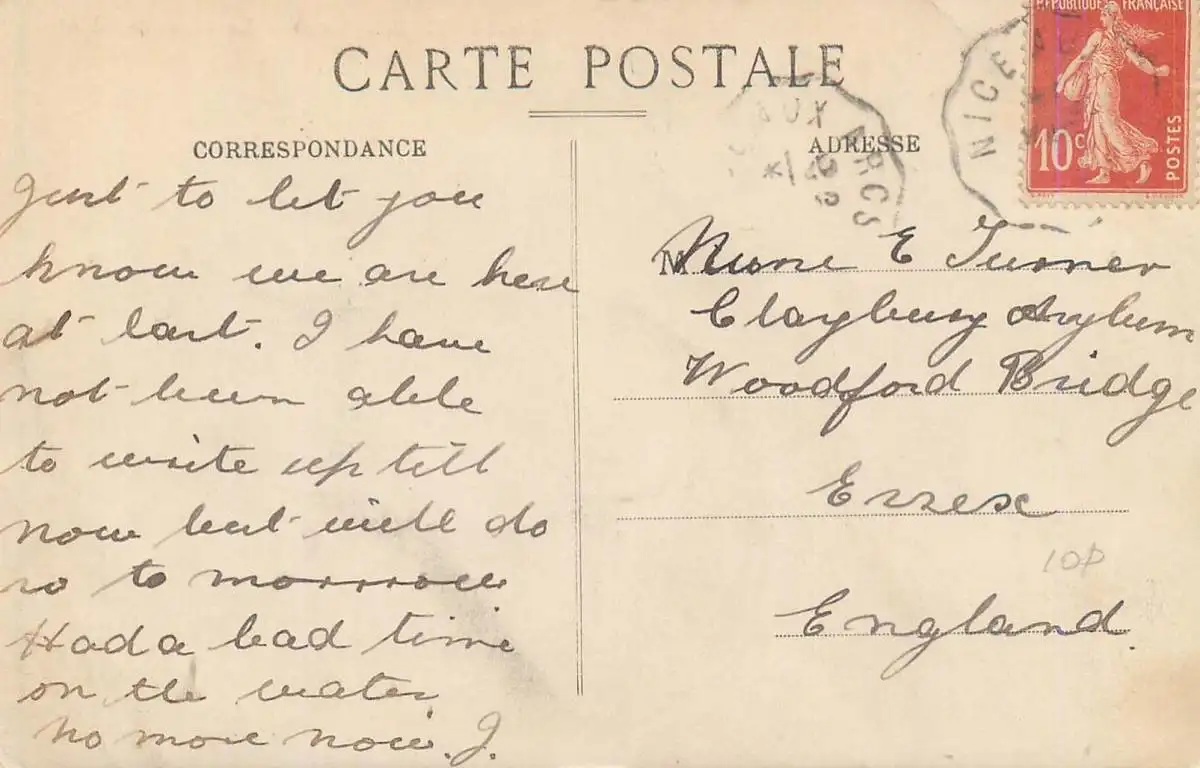 CARTE POSTALE
CORRESPONDANCE
Just to let you
know we are here
at last. I have
not been able
to write up till
now but will do
so to morrow
Had a bad time
on the water
No more now. J.
ADRESSE
Nurse E Turner
Claybury Asylum
Woodford Bridge
Essex
England
10p
RÉPUBLIQUE FRANÇAISE
10c
POSTES
NICE
AUX ARCS